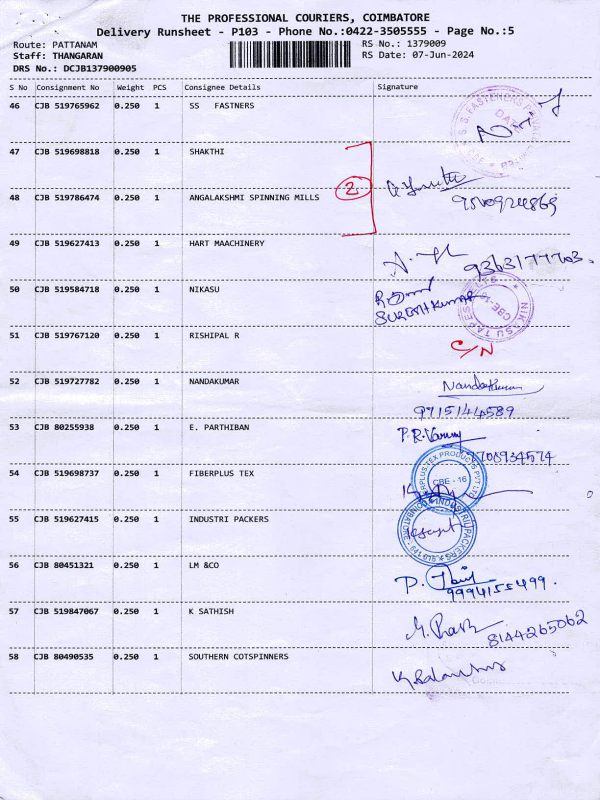 THE PROFESSIONAL COURIERS, COIMBATORE
Delivery Runsheet - P103 - Phone No.:0422-3505555 - Page No.:5
Route: PATTANAM
RS No.: 1379009
Staff: THANGARAN
RS Date: 07-Jun-2024
DRS No.: DCJB137900905
S No Consignment No Weight PCS Consignee Details Signature
46 CJB 519765962 0.250 1 SS FASTNERS
47 CJB 519698818 0.250 1 SHAKTHI
2
48 CJB 519786474 0.250 1 ANGALAKSHMI SPINNING MILLS
49 CJB 519627413 0.250 1 HART MAACHINERY
9363177703.
50 CJB 519584718 0.250 1 NIKASU
SURESH KUMAR
NIKASU TAPES
CBE-16
51 CJB 519767120 0.250 1 RISHIPAL R
C/N
52 CJB 519727782 0.250 1 NANDAKUMAR
Nandakumar
9715144589
53 CJB 80255938 0.250 1 E. PARTHIBAN
9708934574
54 CJB 519698737 0.250 1 FIBERPLUS TEX
CBE - 16
55 CJB 519627415 0.250 1 INDUSTRI PACKERS
INDUSTRI PACKERS
56 CJB 80451321 0.250 1 LM &CO
9994155499.
57 CJB 519847067 0.250 1 K SATHISH
8144265062
58 CJB 80490535 0.250 1 SOUTHERN COTSPINNERS